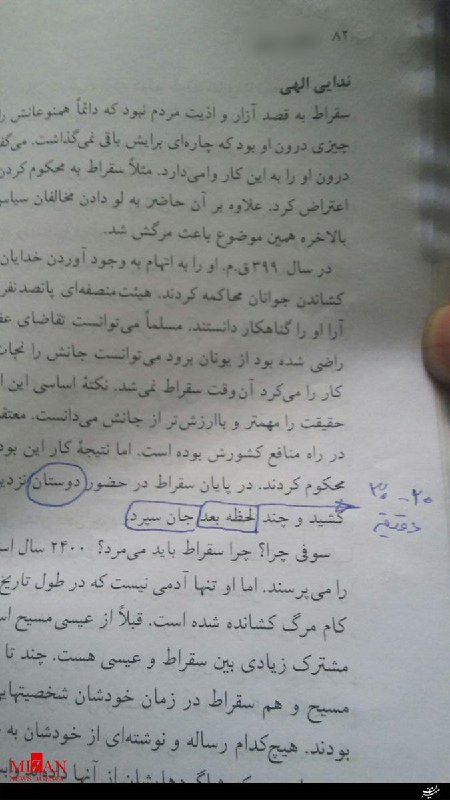 ۸۲
ندایی الهی
سقراط به قصد آزار و اذیت مردم نبود که دائماً همنوعانش را
چیزی درون او بود که چاره‌ای برایش باقی نمی‌گذاشت. می‌گف
درون او را به این کار وامی‌دارد. مثلاً سقراط به محکوم کردن
اعتراض کرد. علاوه بر آن حاضر به لو دادن مخالفان سیاس
بالاخره همین موضوع باعث مرگش شد.
در سال ۳۹۹ ق.م. او را به اتهام به وجود آوردن خدایان
کشاندن جوانان محاکمه کردند. هیئت‌منصفه‌ای پانصدنفر
آرا او را گناهکار دانستند. مسلماً می‌توانست تقاضای عف
راضی شده بود از یونان برود می‌توانست جانش را نجات
کار را می‌کرد آن‌وقت سقراط نمی‌شد. نکتهٔ اساسی این ا
حقیقت را مهمتر و باارزش‌تر از جانش می‌دانست. معتقد
در راه منافع کشورش بوده است. اما نتیجهٔ کار این بود
محکوم کردند. در پایان سقراط در حضور دوستان نزدی
کشید و چند لحظه بعد جان سپرد.
۲۰ - ۳۰
دقیقه
سوفی چرا؟ چرا سقراط باید می‌مرد؟ ۲۴۰۰ سال است
را می‌پرسند. اما او تنها آدمی نیست که در طول تاریخ
کام مرگ کشانده شده است. قبلاً از عیسی‌مسیح اس
مشترک زیادی بین سقراط و عیسی هست. چند تا
مسیح و هم سقراط در زمان خودشان شخصیتهایی
بودند. هیچ‌کدام رساله و نوشته‌ای از خودشان به
MIZAN
NEWS AGENCY